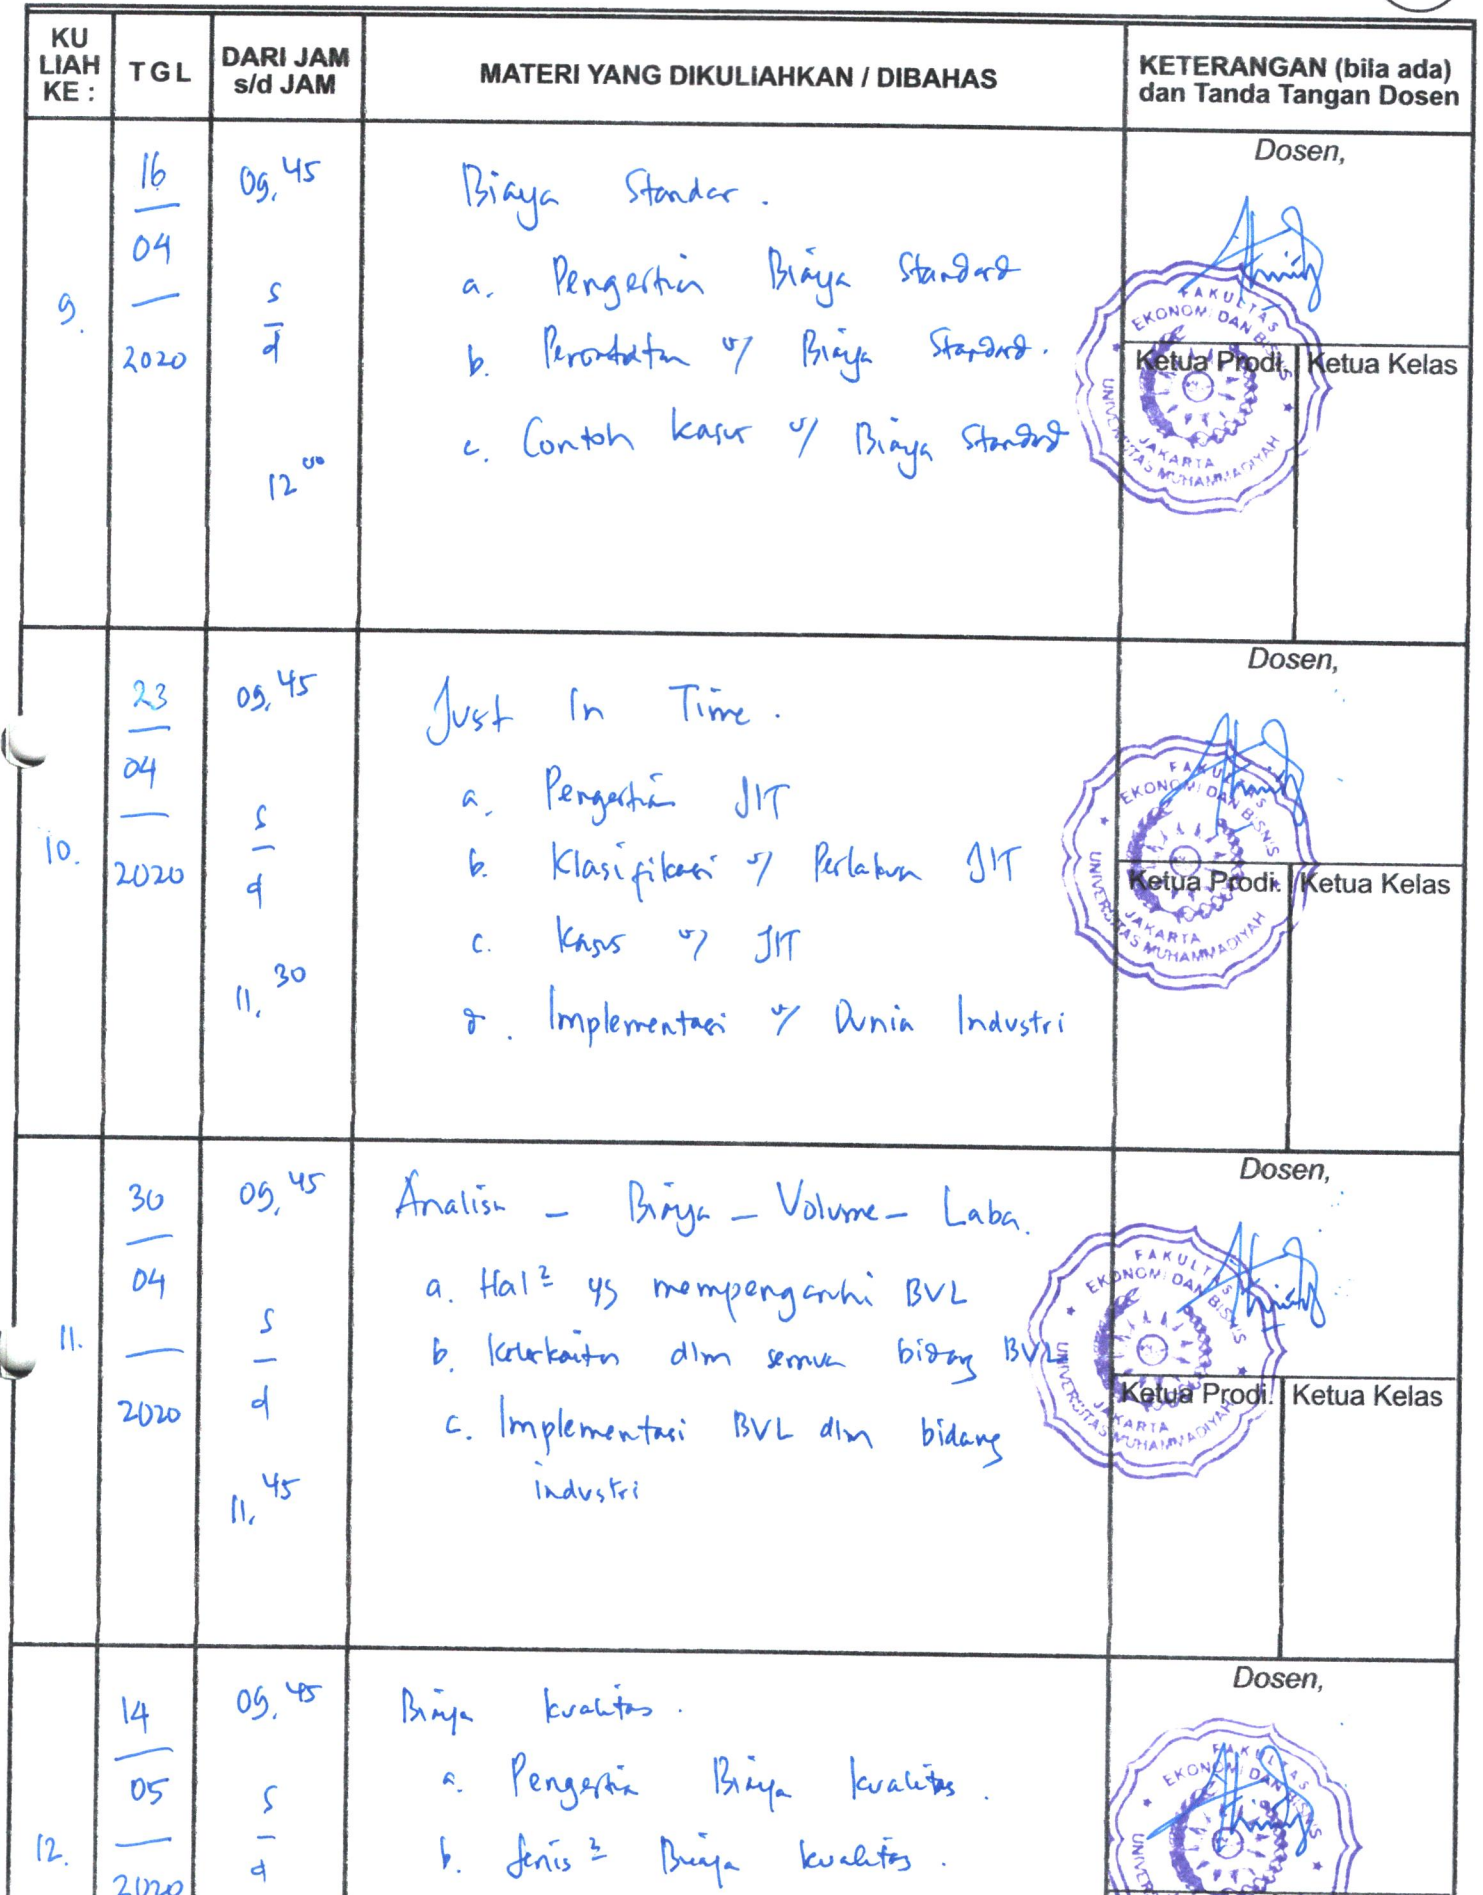 KU LIAH KE : TGL DARI JAM s/d JAM MATERI YANG DIKULIAHKAN / DIBAHAS KETERANGAN (bila ada) dan Tanda Tangan Dosen
9.
16
04
2020
09.45
s
d
12 00
Biaya Standar.
a. Pengertian Biaya Standard
b. Biaya Standard.
c. Contoh kasus Biaya Standard
Dosen,
FAKULTAS
EKONOMI DAN BISNIS
UNIVERSITAS MUHAMMADIYAH
JAKARTA
Ketua Prodi. Ketua Kelas
10.
23
04
2020
09.45
s
d
11.30
Just In Time.
a. Pengertian JIT
b. Klasifikasi JIT
c. Kasus JIT
d. Implementasi Dunia Industri
Dosen,
FAKULTAS
EKONOMI DAN BISNIS
UNIVERSITAS MUHAMMADIYAH
JAKARTA
Ketua Prodi. Ketua Kelas
11.
30
04
2020
09.45
s
d
11.45
Analisa - Biaya - Volume - Laba.
a. Hal² yg mempengaruhi BVL
b. dlm semua bidang BVL
c. Implementasi BVL dlm bidang
industri
Dosen,
FAKULTAS
EKONOMI DAN BISNIS
UNIVERSITAS MUHAMMADIYAH
JAKARTA
Ketua Prodi. Ketua Kelas
12.
14
05
2020
09.45
s
d
Biaya kualitas.
a. Pengertian Biaya kualitas.
b. Jenis² Biaya kualitas.
Dosen,
FAKULTAS
EKONOMI DAN BISNIS